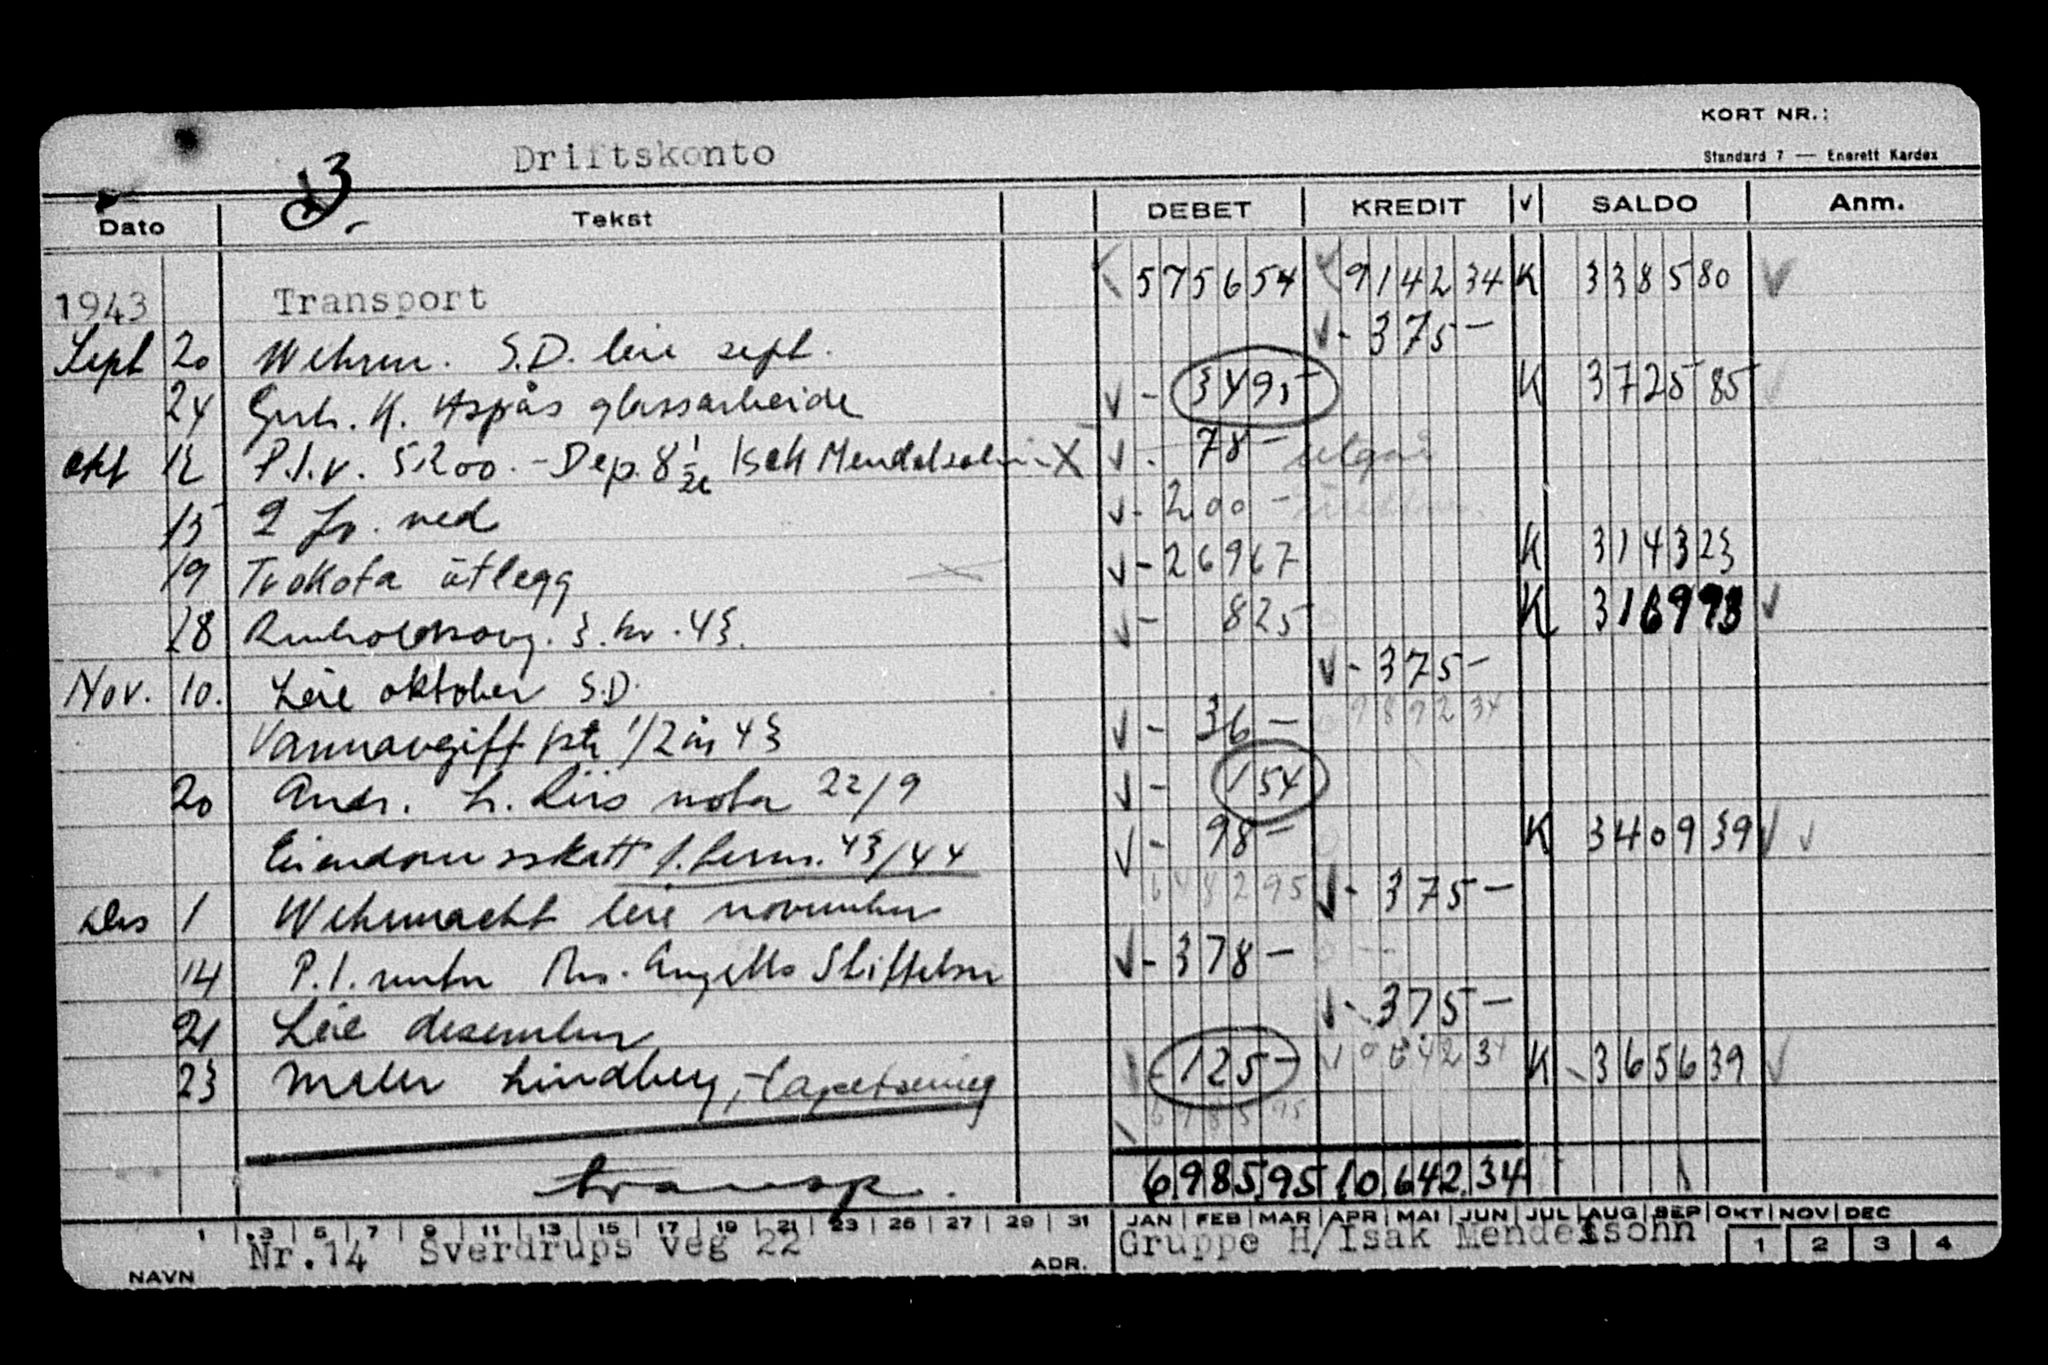 KORT NR.:
Standard 7 — Enerett Kardex
Driftskonto
Dato Tekst DEBET KREDIT √ SALDO Anm.
1943 Transport 5756 54 9142 34 K 3385 80
Sept 20 Wehrm. S.D. leie sept. 375 -
24 H. Aspås glassarbeide 34 95 K 3725 85
okt 12 P.l.v. 5200.- Dep. 8 Isak Mendelsohn X 78 - utgår
15 2 fv. ved 200 -
19 Trokota utlegg 269 67 K 3143 23
28 Renholdsavg. 3. kv. 43. 8 25 K 3169 93
Nov. 10. Leie oktober S.D. 375 -
9892 34
Vannavgift for 1/2 år 43 36 -
20 Andr. L. Riis nota 22/9 1 54
Eiendomsskatt f. term. 43/44 98 - K 3409 39
6482 95
Des 1 Wehrmacht leie november 375 -
14 P.l. renter Ths. Angells Stiftelser 378 -
21 Leie desember 375 -
10642 34
23 Maler Lindberg, tapetsering 125 - K 3656 39
6985 95
transp. 6985.95 10.642.34
1 3 5 7 9 11 13 15 17 19 21 23 25 27 29 31 JAN FEB MAR APR MAI JUN JUL AUG SEP OKT NOV DEC
NAVN Nr.14 Sverdrups veg 22 ADR. Gruppe H/Isak Mendelssohn 1 2 3 4